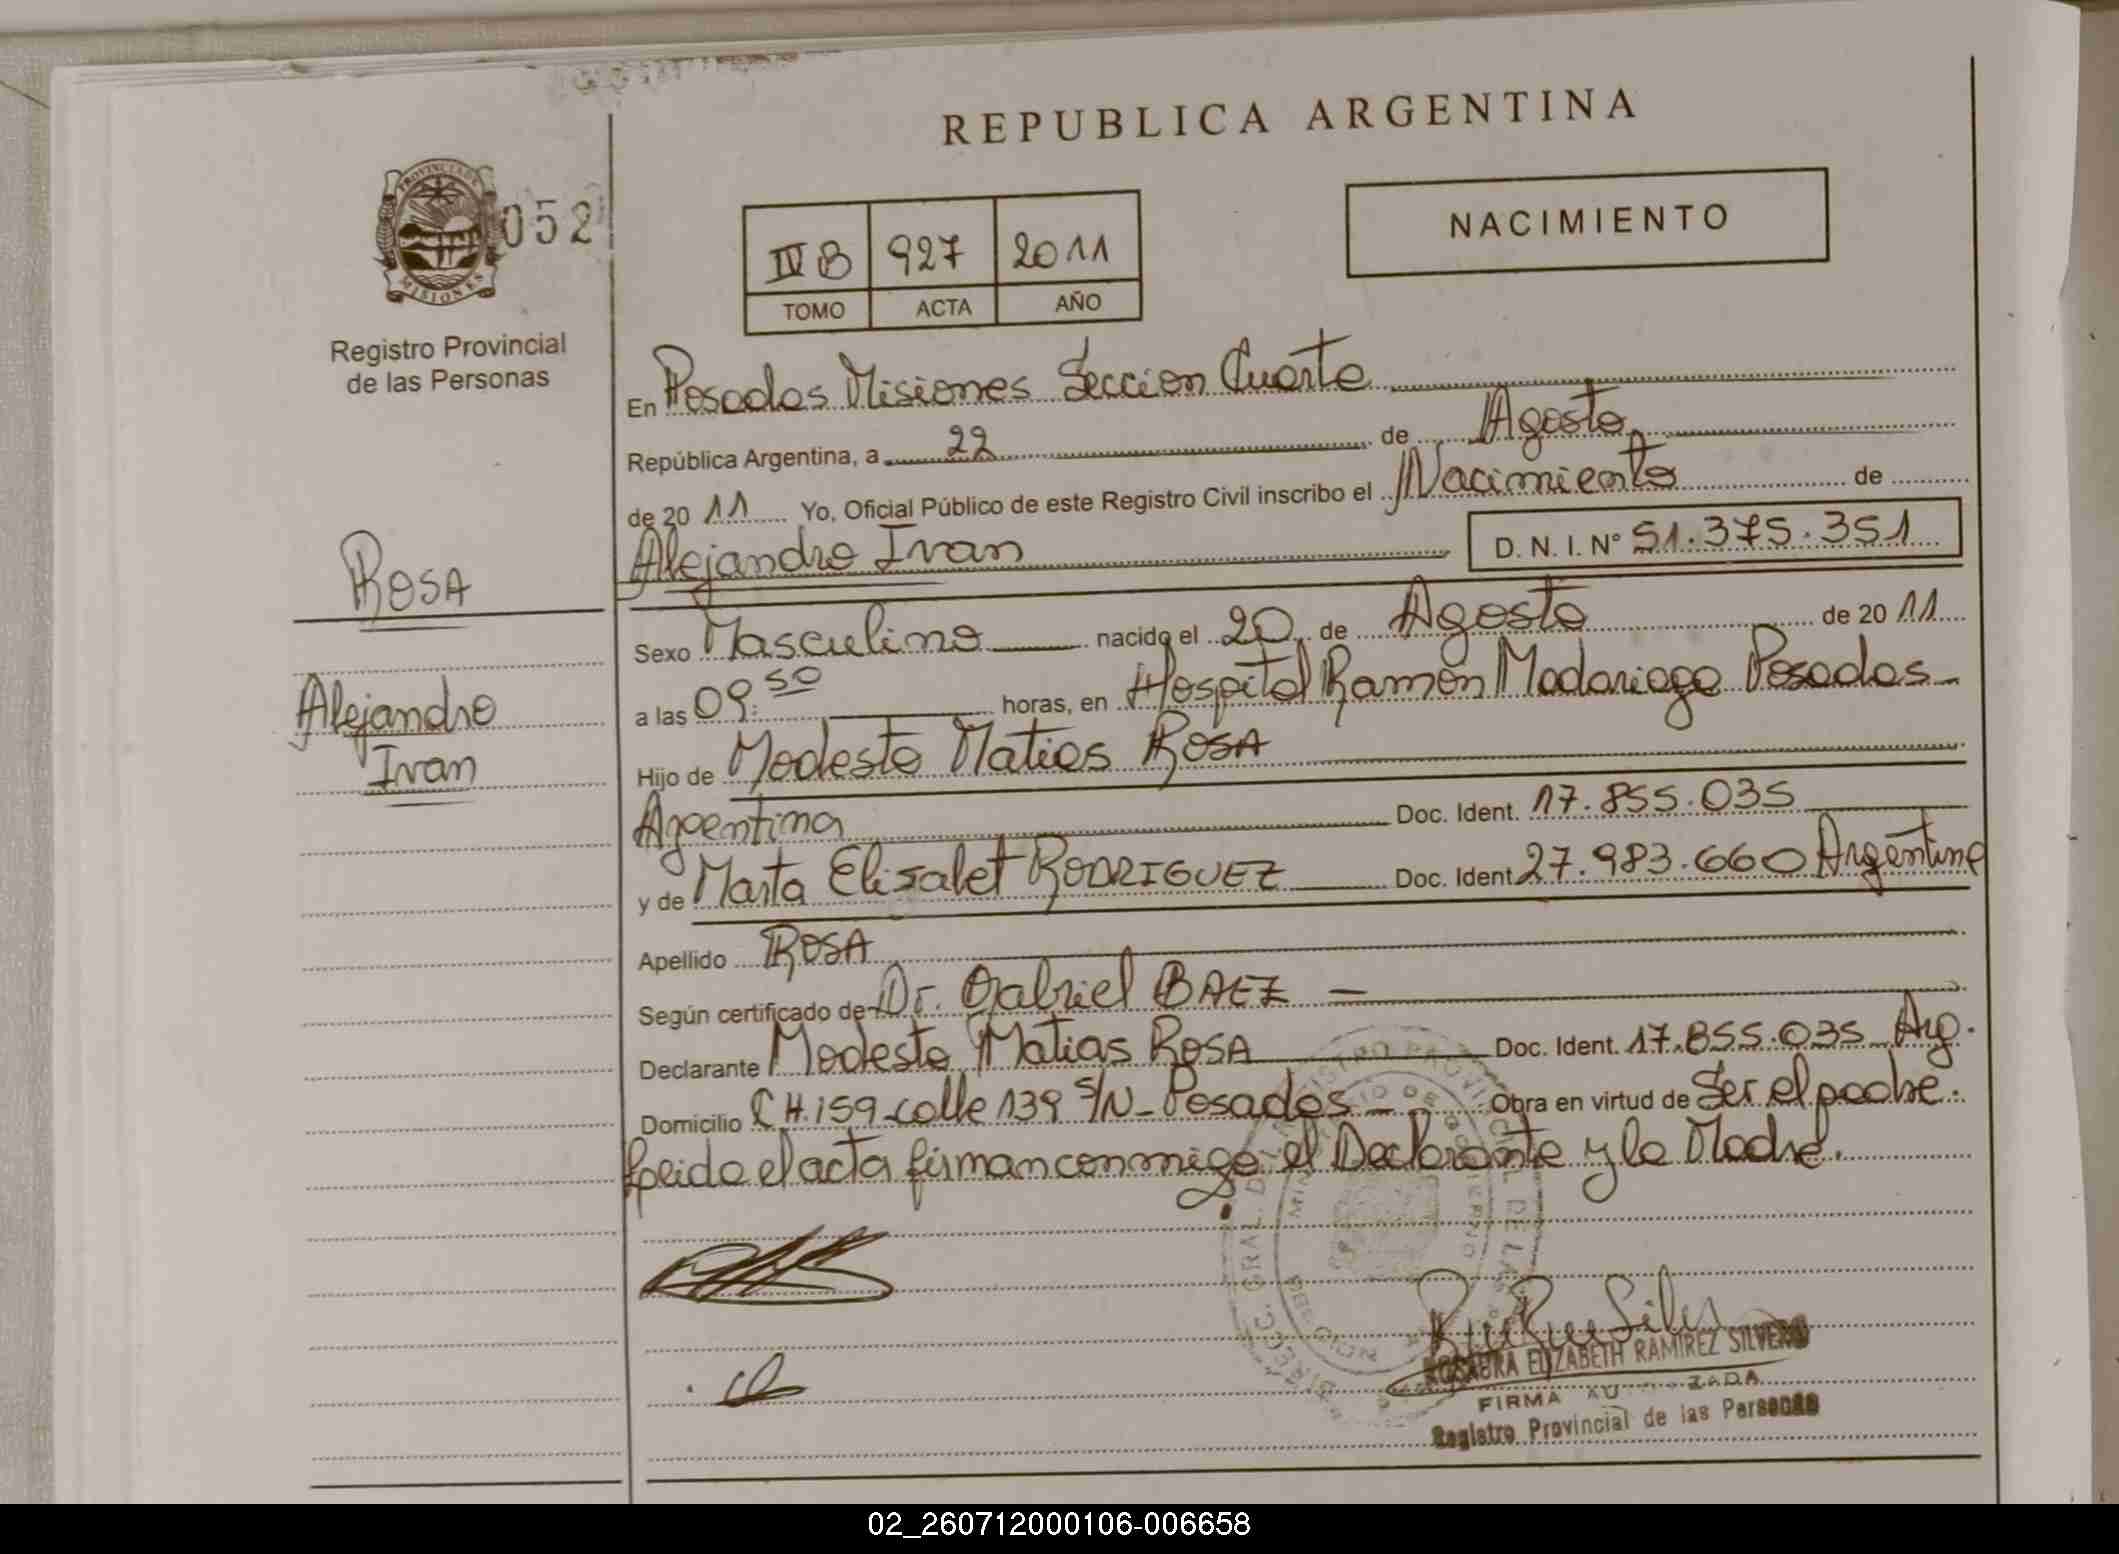 REPUBLICA ARGENTINA
PROVINCIA DE
MISIONES
052
Registro Provincial
de las Personas
IV B 927 2011
TOMO ACTA AÑO
NACIMIENTO
En Posadas Misiones Seccion Cuarta
República Argentina, a 22 de Agosto
de 20 11 Yo, Oficial Público de este Registro Civil inscribo el Nacimiento de
Alejandro Ivan D. N. I. Nº 51.375.351
ROSA
Alejandro
Ivan
Sexo Masculino nacido el 20 de Agosto de 20 11
a las 09:50 horas, en Hospital Ramon Madariaga Posadas
Hijo de Modesto Matias ROSA
Argentina Doc. Ident. 17.855.035
y de Marta Elisabet RODRIGUEZ Doc. Ident 27.983.660 Argentina
Apellido ROSA
Según certificado de Dr. Gabriel BAEZ
Declarante Modesto Matias ROSA Doc. Ident. 17.855.035 Arg.
Domicilio CH.159 calle 139 S/N - Posadas - Obra en virtud de Ser el padre.
Leida el acta firman conmigo el Declarante y la Madre.
ROSAURA ELIZABETH RAMIREZ SILVERO
FIRMA AUTORIZADA
Registro Provincial de las Personas
02_260712000106-006658